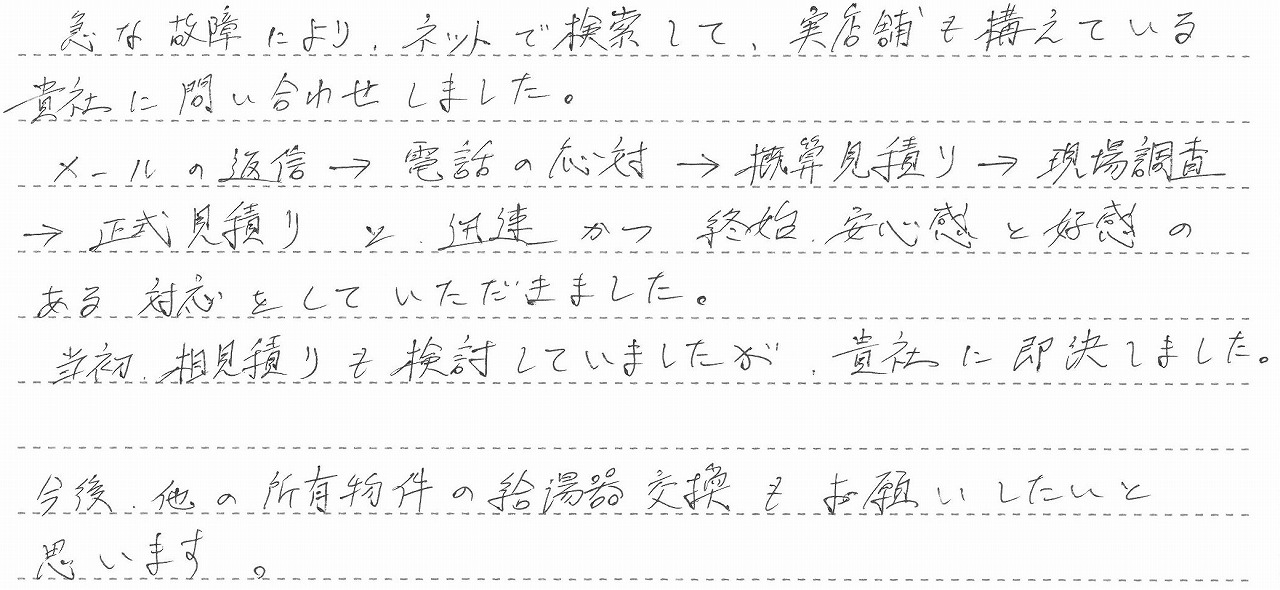 急な故障により、ネットで検索して、実店舗も構えている
貴社に問い合わせしました。
メールの返信→電話の応対→概算見積り→現場調査
→正式見積りと、迅速かつ終始、安心感と好感の
ある対応をしていただきました。
当初、相見積りも検討していましたが、貴社に即決しました。
今後、他の所有物件の給湯器交換もお願いしたいと
思います。